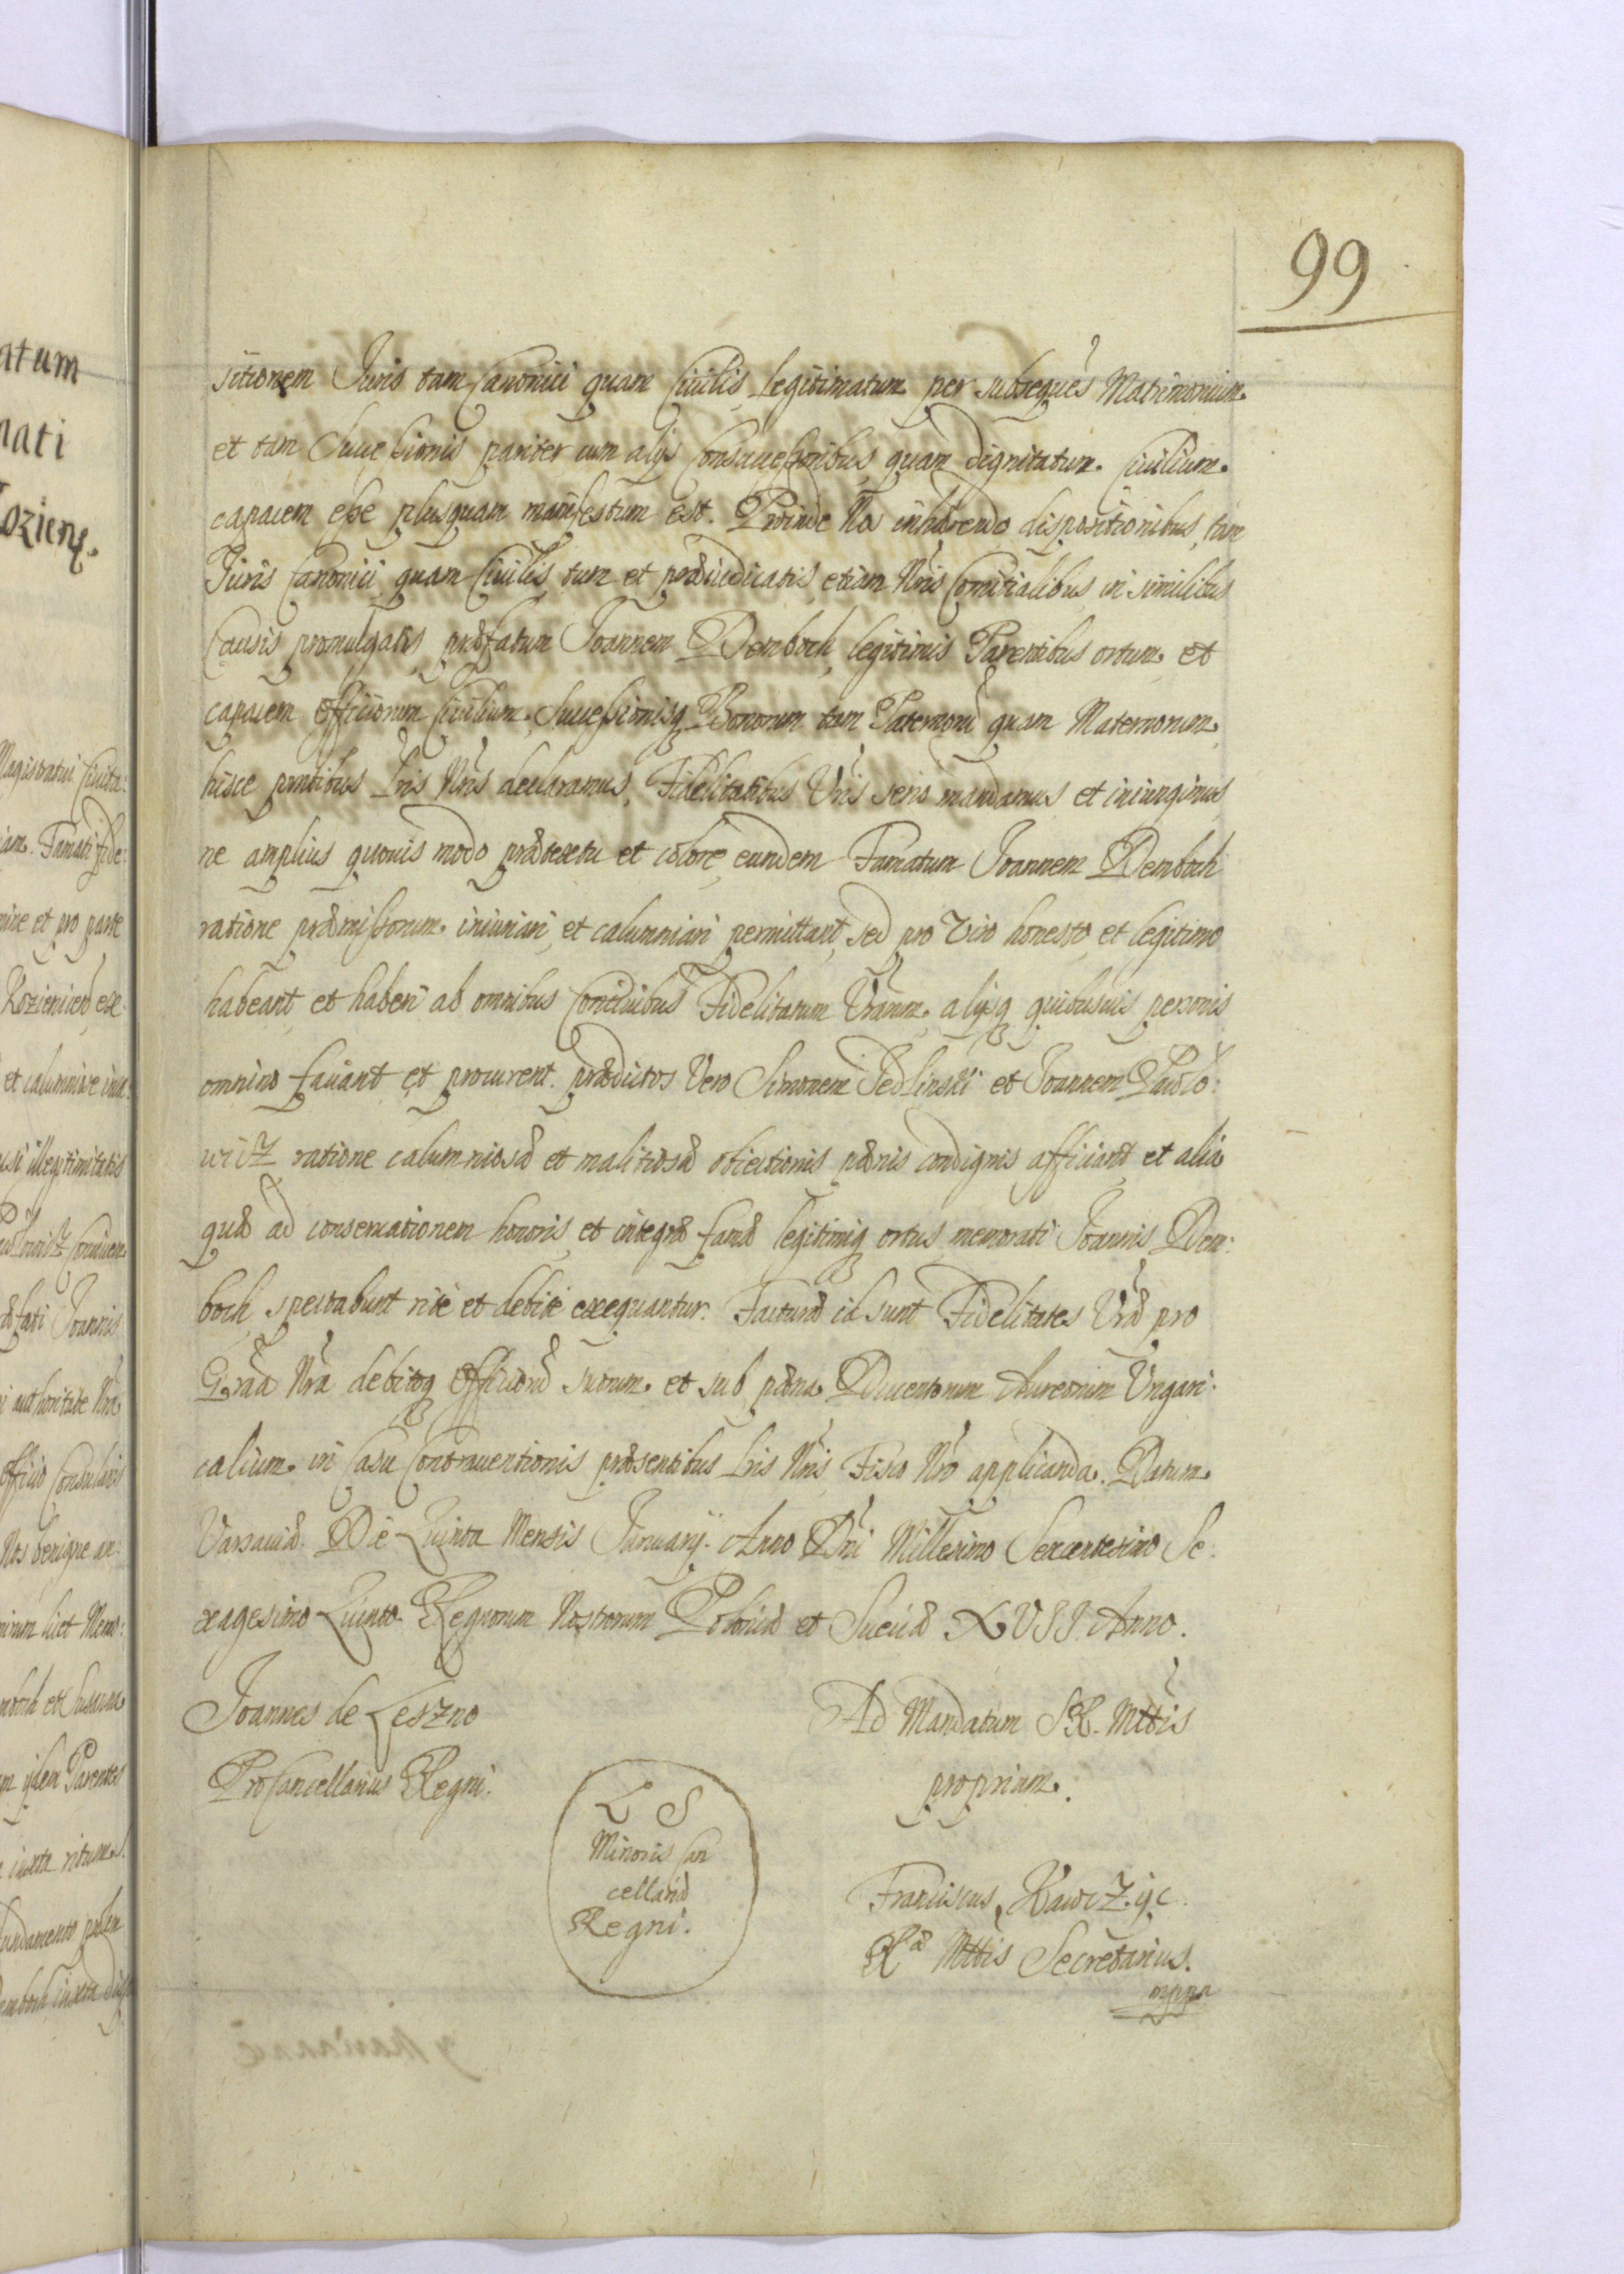 99
sitionem Iuris tam Canonici quam Ciuilis legitimatum per subsequēs Matrimonium
et tam Successionis pariter cum alijs Consuccessoribus quam dignitatum Ciuilium
capacem esse plusquam manifestum est. Proinde Nos inhærendo dispositionibus tam
Iuris Canonici quam Ciuilis tum et præiudicatis etiam Nris Comitialibus in similibus
Causis promulgatis præfatum Ioannem Demboch legitimis Parentibus ortum et
capacem Officiorum Ciuilium Successionisq Bonorum tam Paternorū quam Maternorum
hisce pntibus Lris Nris declaramus, Fidelitatibus Vris serio mandamus et iniungimus
ne amplius quouis modo prætextu et colore eundem Famatum Ioannem Demboch
ratione præmissorum iniuriari et calumniari permittant, sed pro Viro honesto et legitimo
habeant et haberi ab omnibus Conciuibus Fidelitatum Vrarum alijsq quibusuis personis
omnino faciant et procurent. prædictos Vero Simonem Jedlinski et Joannem Pawlo:
wicz ratione calumniosæ et malitiosæ obiectionis pœnis condignis afficiant et alia
quæ ad conseruationem honoris et integræ famæ legitimiq ortus memorati Ioannis Dem:
boch spectabunt rité et debité exequantur. Facturæ id sunt Fidelitates Vræ pro
Gratia Nra debitoq Officiorū suorum et sub pœna Ducentorum Aureorum Vngari:
calium in Casu Contrauentionis præsentibus Lris Nris Fisco Nro applicanda. Datum
Varsauiæ Die Quinta Mensis Januarij Anno Dni Millesimo Sexcentesimo Se:
xagesimo Quinto Regnorum Nostrorum Poloniæ et Sueciæ XVII Anno.
Joannes de Leszno
ProCancellarius Regni.
Ad Mandatum S R. Mttis
proprium.
L S
Minoris Can
cellariæ
Regni.
Franciscus Rawicz
Ræ Mttis Secretarius.
mppa